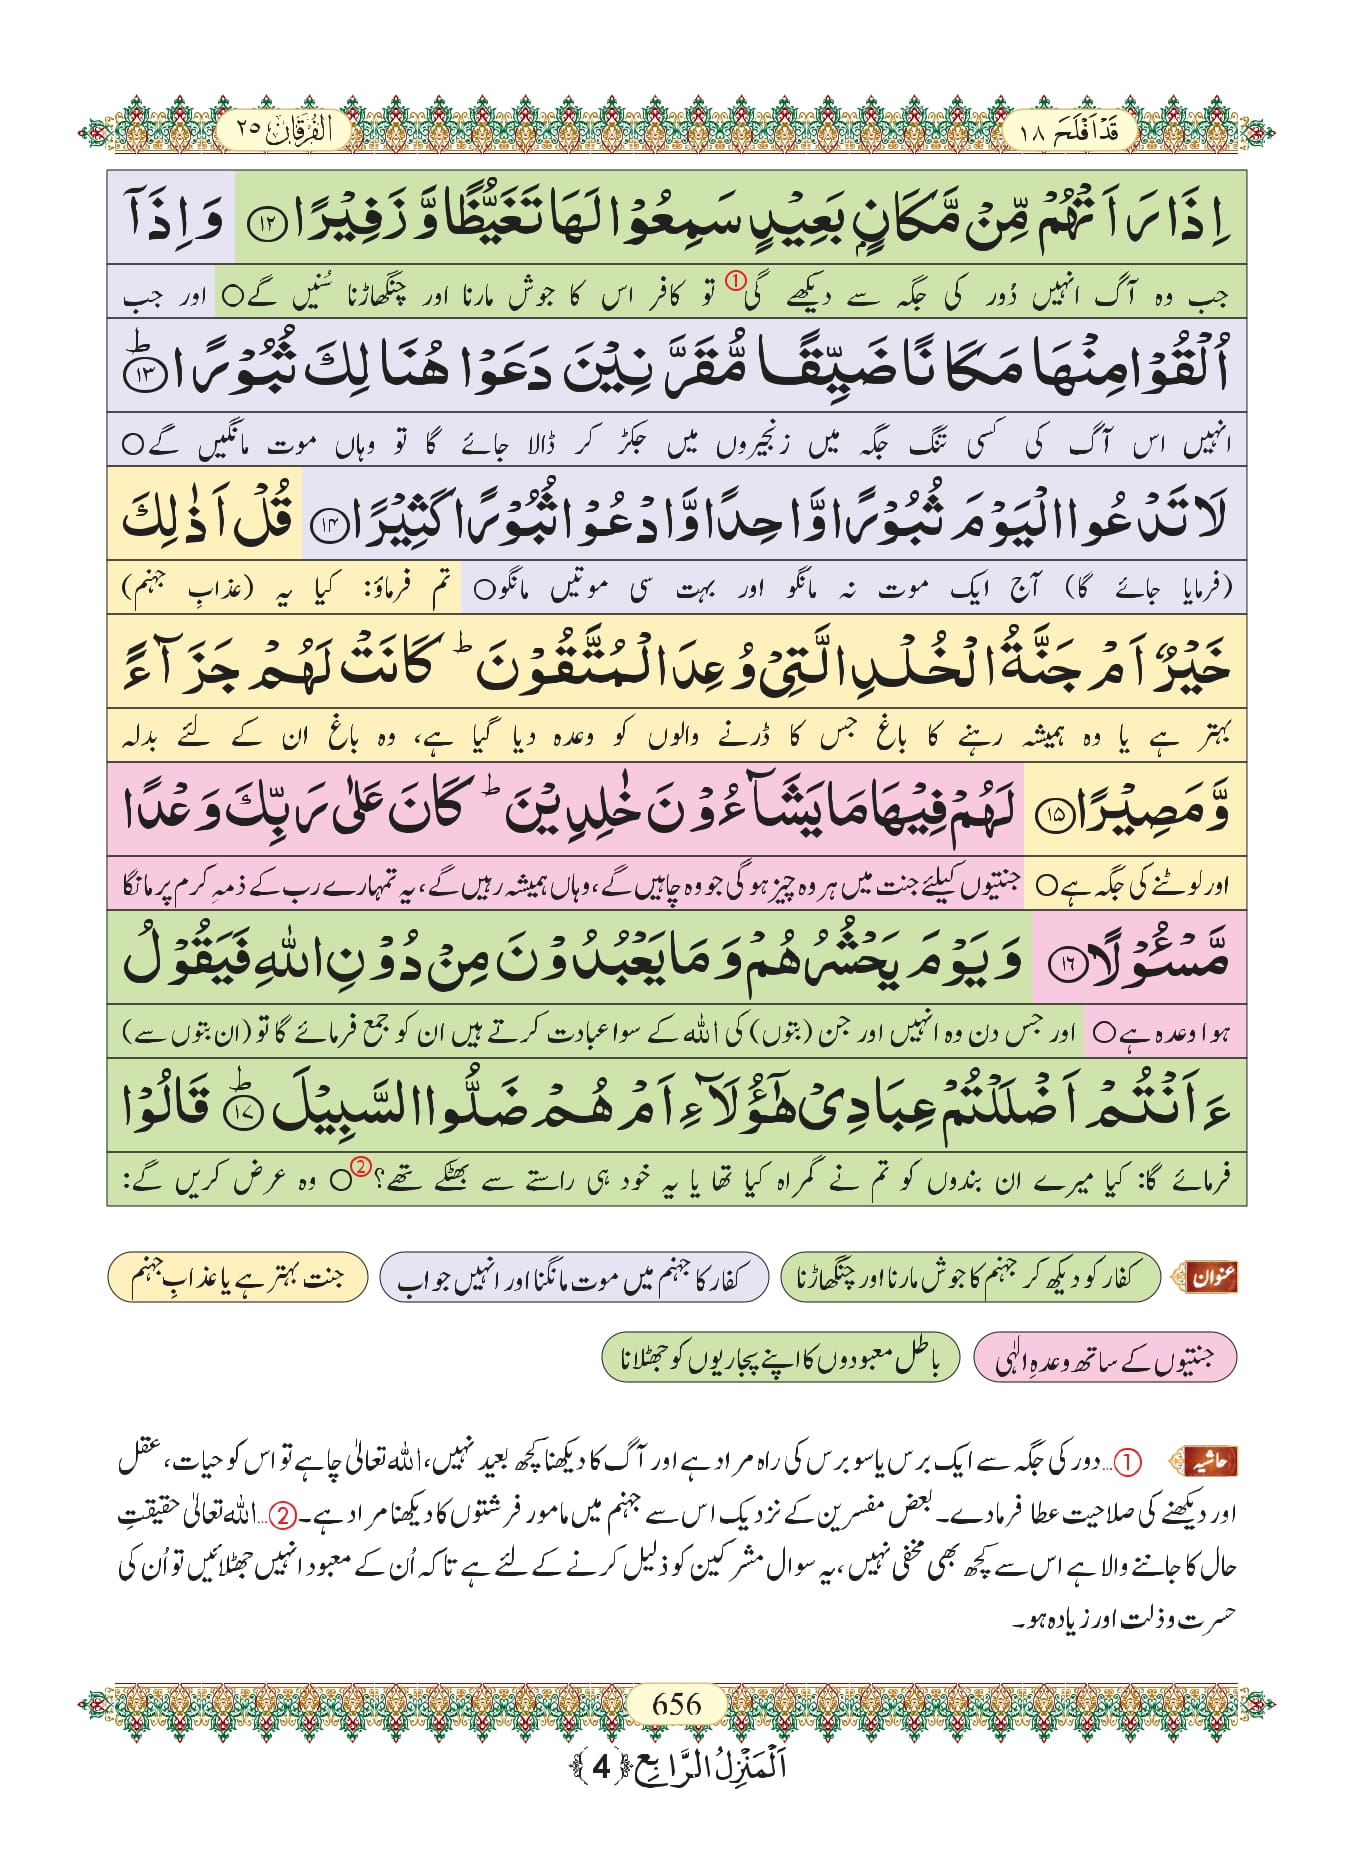 قَدْ اَفْلَحَ ١٨
اَلْفُرْقَان ٢٥
اِذَا رَاَتْهُمْ مِّنْ مَّكَانٍۭ بَعِیْدٍ سَمِعُوْا لَهَا تَغَیُّظًا وَّ زَفِیْرًا ﴿۱۲﴾ وَ اِذَاۤ
جب وہ آگ انہیں دُور کی جگہ سے دیکھے گی① تو کافر اس کا جوش مارنا اور چنگھاڑنا سُنیں گے○ اور جب
اُلْقُوْا مِنْهَا مَكَانًا ضَیِّقًا مُّقَرَّنِیْنَ دَعَوْا هُنَالِكَ ثُبُوْرًا ﴿ؕ۱۳﴾
انہیں اس آگ کی کسی تنگ جگہ میں زنجیروں میں جکڑ کر ڈالا جائے گا تو وہاں موت مانگیں گے○
لَا تَدْعُوا الْیَوْمَ ثُبُوْرًا وَّاحِدًا وَّ ادْعُوْا ثُبُوْرًا كَثِیْرًا ﴿۱۴﴾ قُلْ اَذٰلِكَ
(فرمایا جائے گا) آج ایک موت نہ مانگو اور بہت سی موتیں مانگو○ تم فرماؤ: کیا یہ (عذابِ جہنم)
خَیْرٌ اَمْ جَنَّةُ الْخُلْدِ الَّتِیْ وُعِدَ الْمُتَّقُوْنَ ؕ كَانَتْ لَهُمْ جَزَآءً
بہتر ہے یا وہ ہمیشہ رہنے کا باغ جس کا ڈرنے والوں کو وعدہ دیا گیا ہے، وہ باغ ان کے لئے بدلہ
وَّ مَصِیْرًا ﴿۱۵﴾ لَهُمْ فِیْهَا مَا یَشَآءُوْنَ خٰلِدِیْنَ ؕ كَانَ عَلٰى رَبِّكَ وَعْدًا
اور لوٹنے کی جگہ ہے○ جنتیوں کیلئے جنت میں ہر وہ چیز ہوگی جو وہ چاہیں گے، وہاں ہمیشہ رہیں گے، یہ تمہارے رب کے ذمہِ کرم پر مانگا
مَّسْـُٔوْلًا ﴿۱۶﴾ وَ یَوْمَ یَحْشُرُهُمْ وَ مَا یَعْبُدُوْنَ مِنْ دُوْنِ اللّٰهِ فَیَقُوْلُ
ہوا وعدہ ہے○ اور جس دن وہ انہیں اور جن (بتوں) کی اللہ کے سوا عبادت کرتے ہیں ان کو جمع فرمائے گا تو (ان بتوں سے)
ءَاَنْتُمْ اَضْلَلْتُمْ عِبَادِیْ هٰۤؤُلَآءِ اَمْ هُمْ ضَلُّوا السَّبِیْلَ ﴿ؕ۱۷﴾ قَالُوْا
فرمائے گا: کیا میرے ان بندوں کو تم نے گمراہ کیا تھا یا یہ خود ہی راستے سے بھٹکے تھے؟②○ وہ عرض کریں گے:
عنوان کفار کو دیکھ کر جہنم کا جوش مارنا اور چنگھاڑنا کفار کا جہنم میں موت مانگنا اور انہیں جواب جنت بہتر ہے یا عذابِ جہنم
جنتیوں کے ساتھ وعدہِ الٰہی باطل معبودوں کا اپنے پجاریوں کو جھٹلانا
حاشیہ ①...دور کی جگہ سے ایک برس یا سو برس کی راہ مراد ہے اور آگ کا دیکھنا کچھ بعید نہیں، اللہ تعالیٰ چاہے تو اس کو حیات، عقل
اور دیکھنے کی صلاحیت عطا فرمادے۔ بعض مفسرین کے نزدیک اس سے جہنم میں مامور فرشتوں کا دیکھنا مراد ہے۔ ②...اللہ تعالیٰ حقیقتِ
حال کا جاننے والا ہے اس سے کچھ بھی مخفی نہیں، یہ سوال مشرکین کو ذلیل کرنے کے لئے ہے تاکہ اُن کے معبود انہیں جھٹلائیں تو اُن کی
حسرت و ذلت اور زیادہ ہو۔
656
اَلْمَنْزِلُ الرَّابِع ﴿4﴾